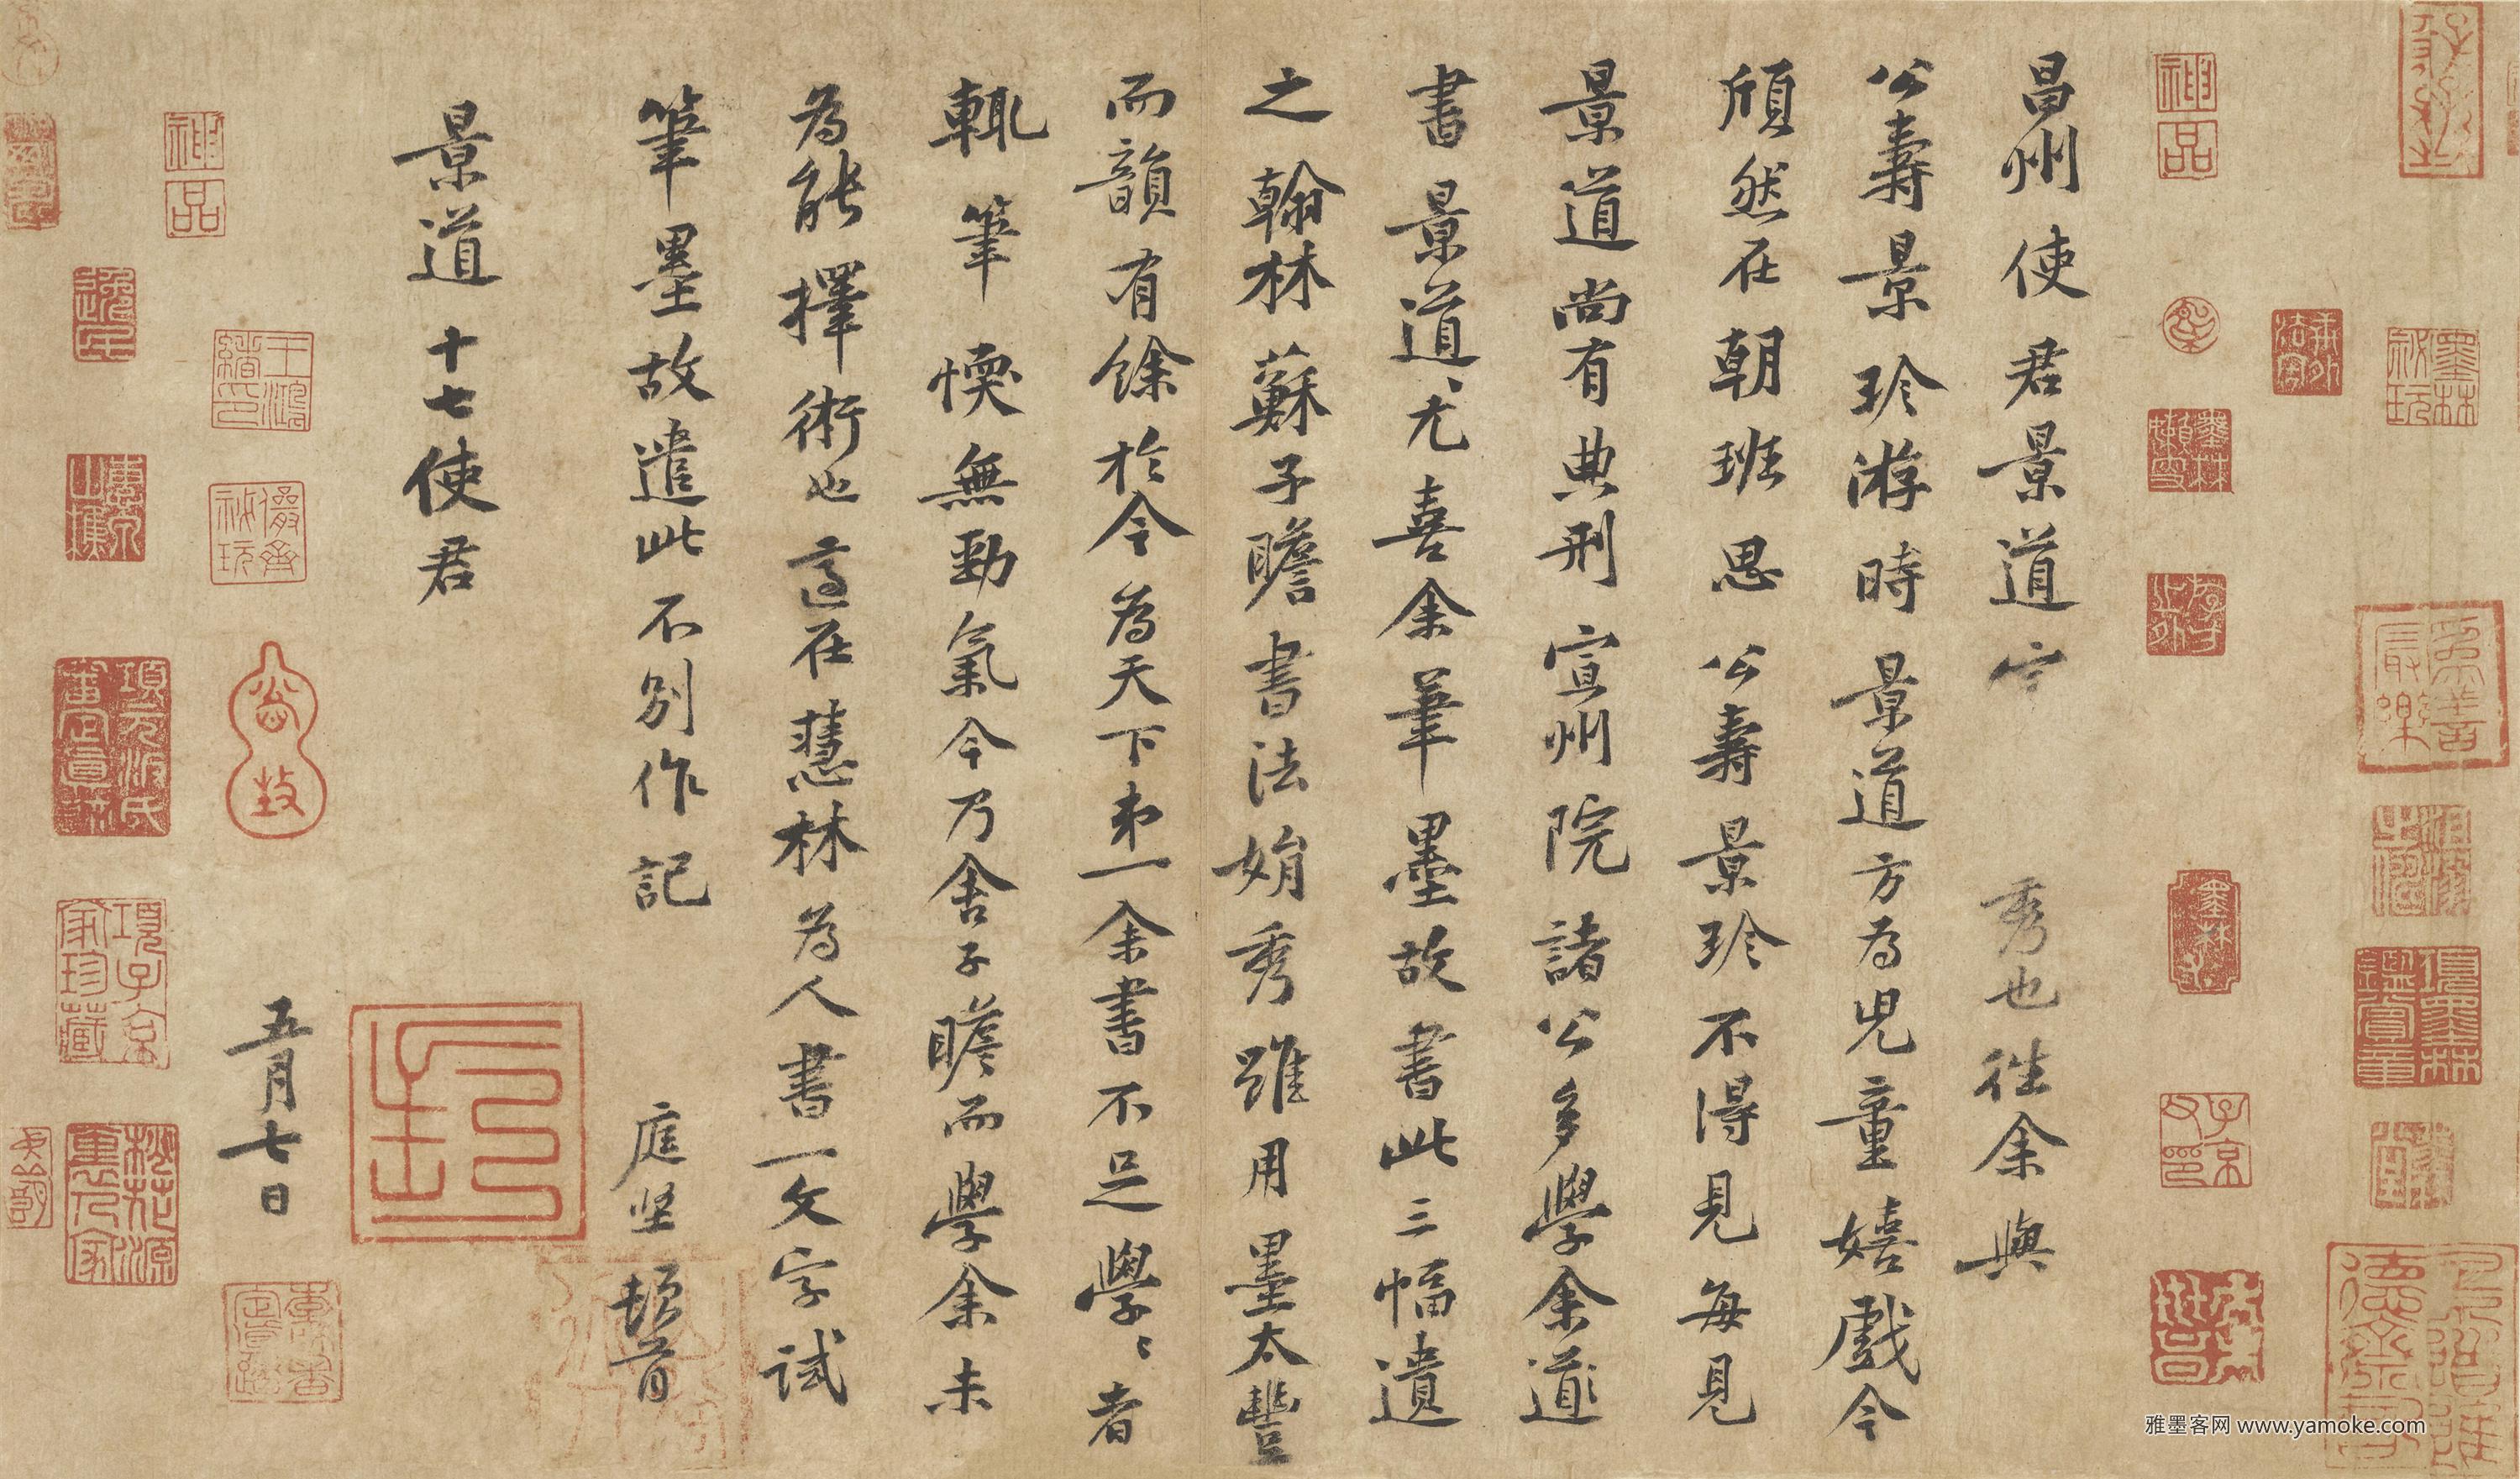 昌州使君景道宗秀也往余與
公壽景珍游時景道方為兒童嬉戲今
頎然在朝班思公壽景珍不得見每見
景道尚有典刑宣州院諸公多學余道
書景道尤喜余筆墨故書此三幅遺
之翰林蘇子瞻書法娟秀雖用墨太豐
而韻有餘於今為天下第一余書不足學學者
輒筆愞無勁氣今乃舍子瞻而學余未
為能擇術也適在慧林為人書一文字試
筆墨故遣此不別作記
庭堅頓首
景道十七使君
五月七日
神品
神品
墨林祕玩
子京父印
項元汴氏審定真跡
項子京家珍藏
項墨林鑑賞章
雅墨客网 www.yamoke.com